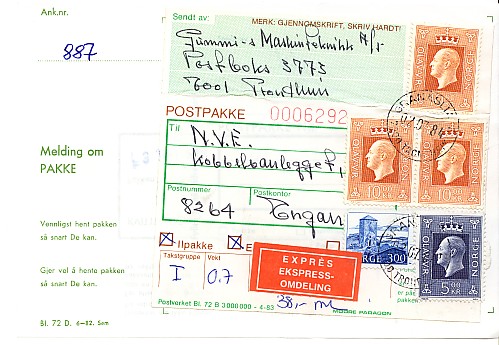 Ank.nr.
887
Melding om
PAKKE
Vennligst hent pakken
så snart De kan.
Gjer vel å hente pakken
så snart De kan.
Bl. 72 D. 4-82. Sem
Sendt av:
MERK: GJENNOMSKRIFT, SKRIV HARDT!
Gummi- & Maskinteknikk A/S
Postboks 3773
7001 Trondheim
POSTPAKKE
0006292
Til
N.V.E.
Kobbelvanlegget,
Postnummer
Postkontor
8264
Engan
Ilpakke
Takstgruppe
Vekt
I
0.7
EXPRÈS
EKSPRESS-
OMDELING
38,-
Postverket Bl. 72 B 3000000 - 4-83
MOORE PARAGON
NORGE
NORGE
10.00
NORGE
10.00
NORGE 3.00
NORGE
5.00